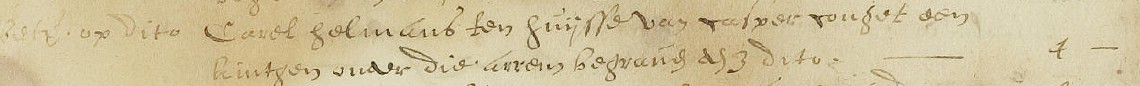 betp. op dito Carel helmans ten huijsse van casper conget een
kintgen onder die arrem begraue den 3 dito. — 4 —